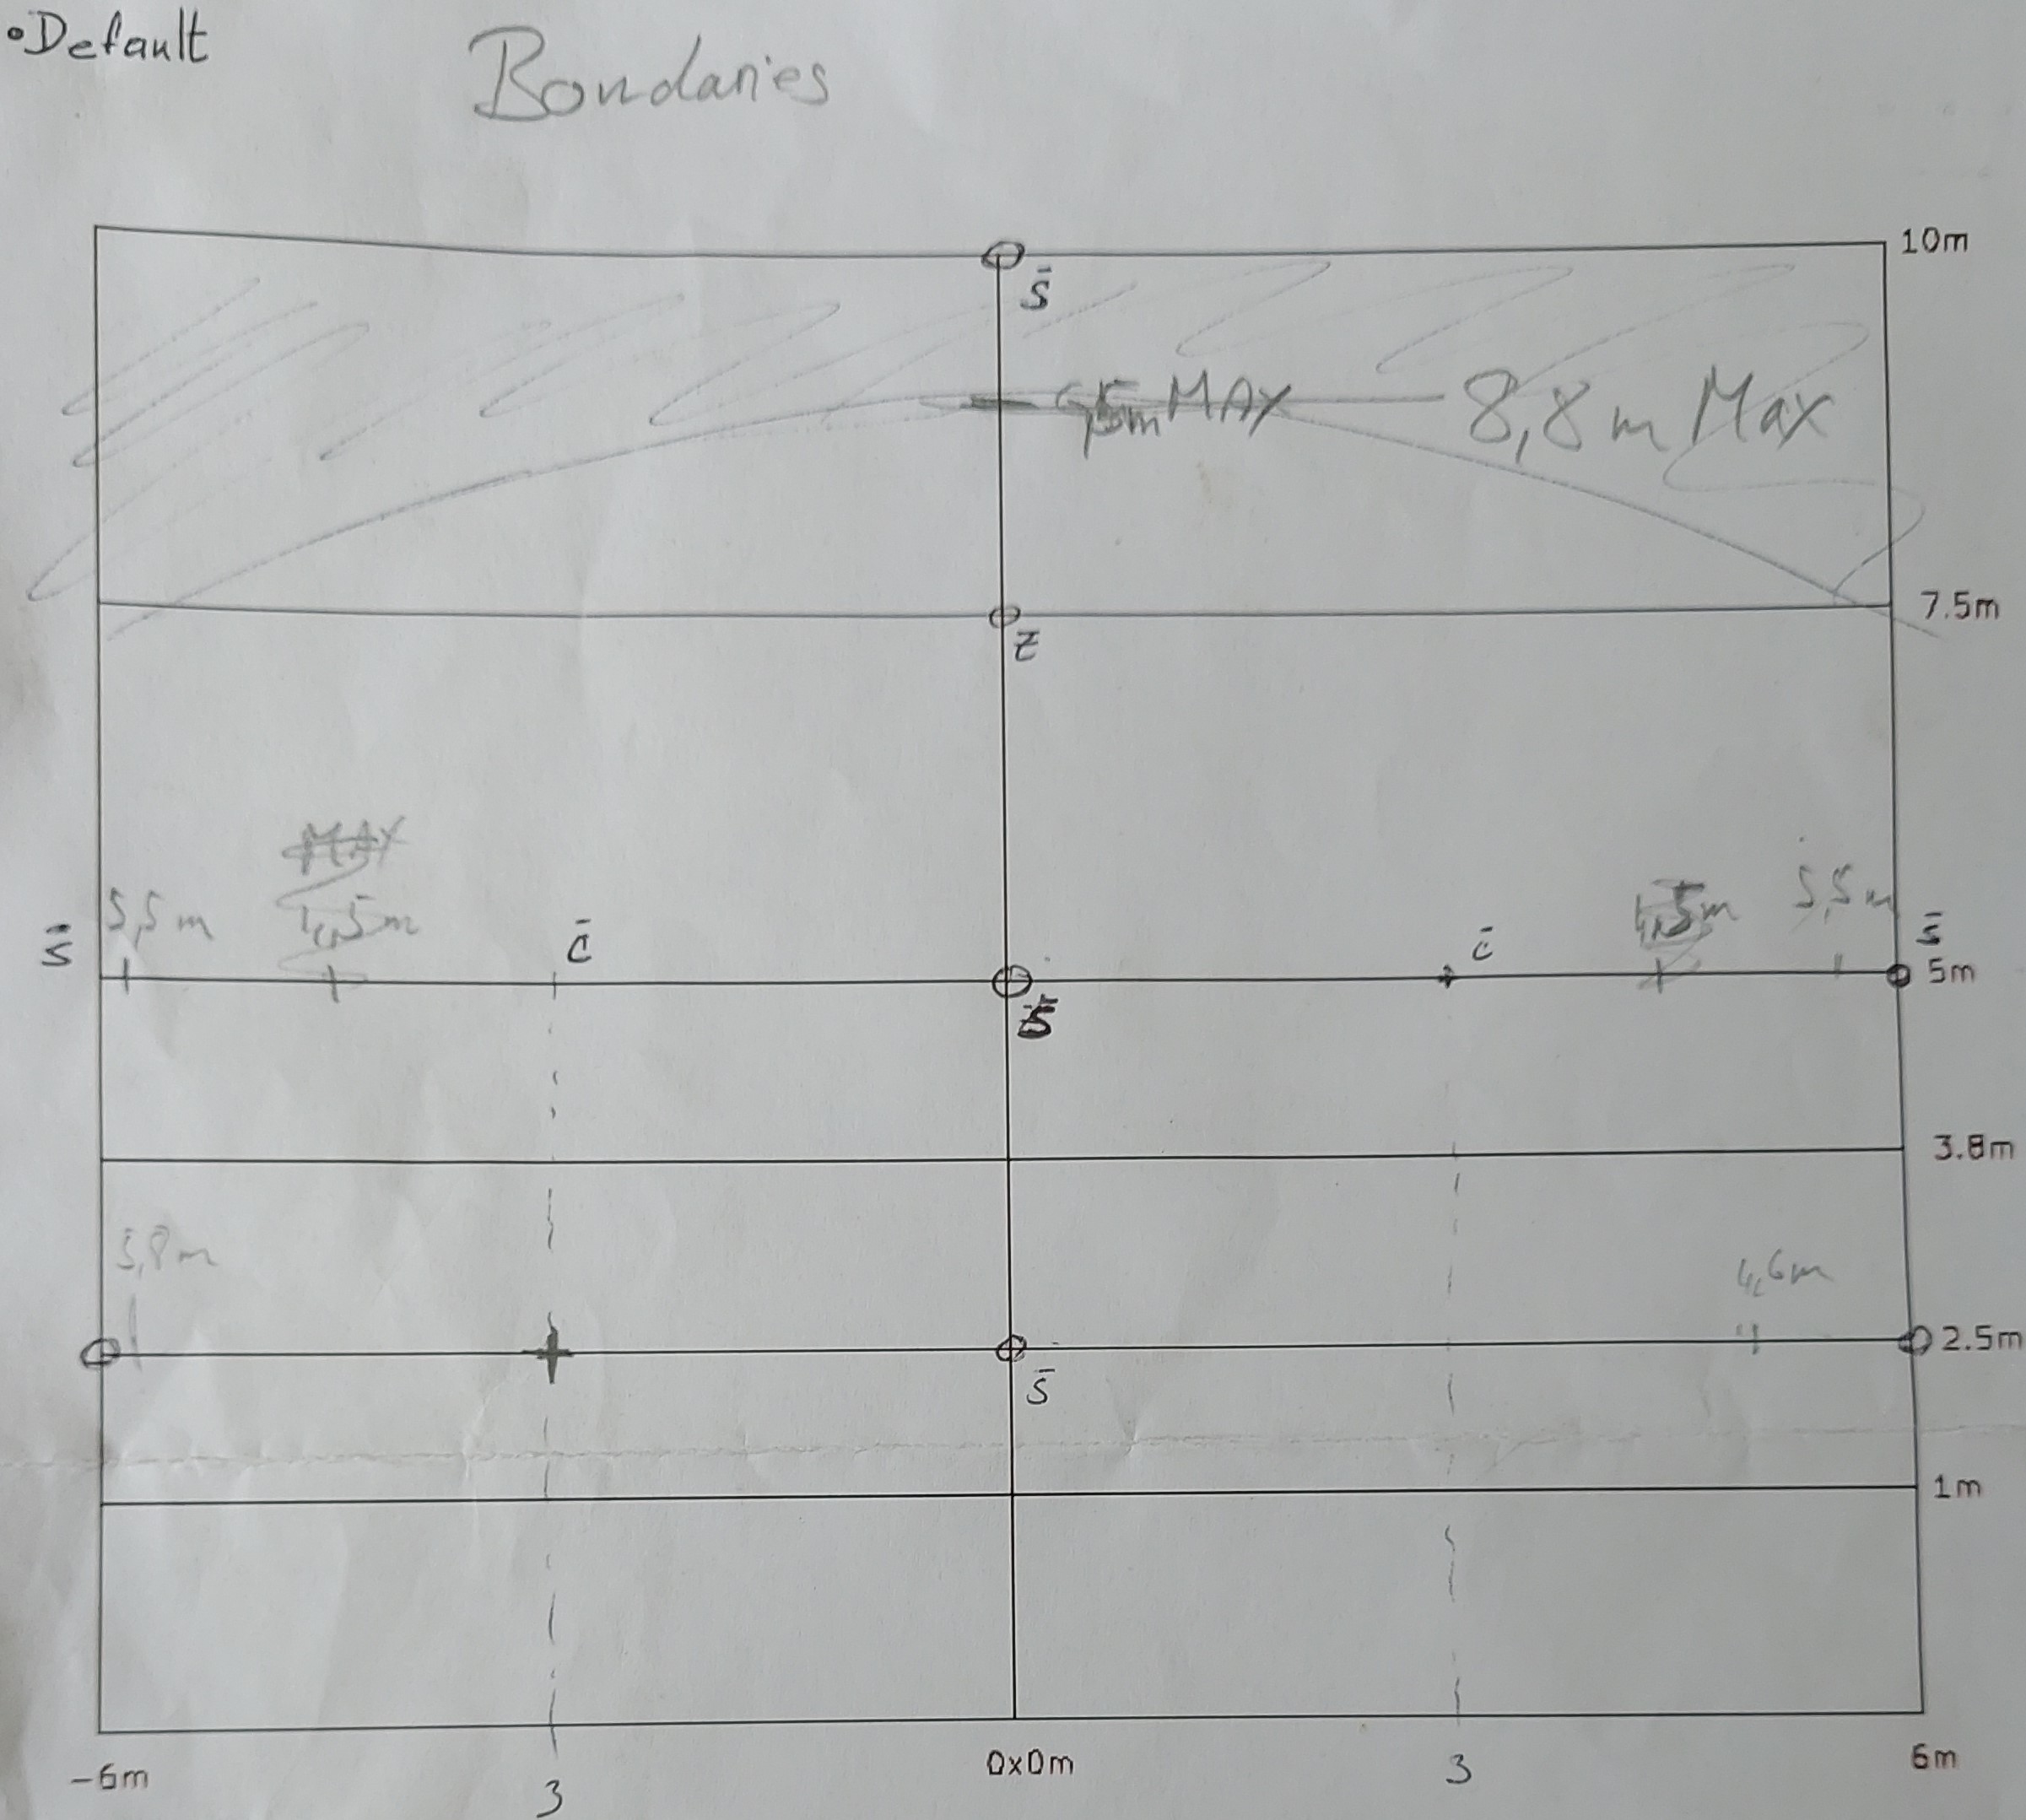 •Default
Bondaries
10m
S̄
MAX
8,8m Max
7.5m
Z
MAX
5,5m
4,5m
C̄
C̄
4,5m
5,5m
S̄
S̄
5m
3.8m
5,8m
4,6m
2.5m
S̄
1m
-6m
0x0m
6m
3
3